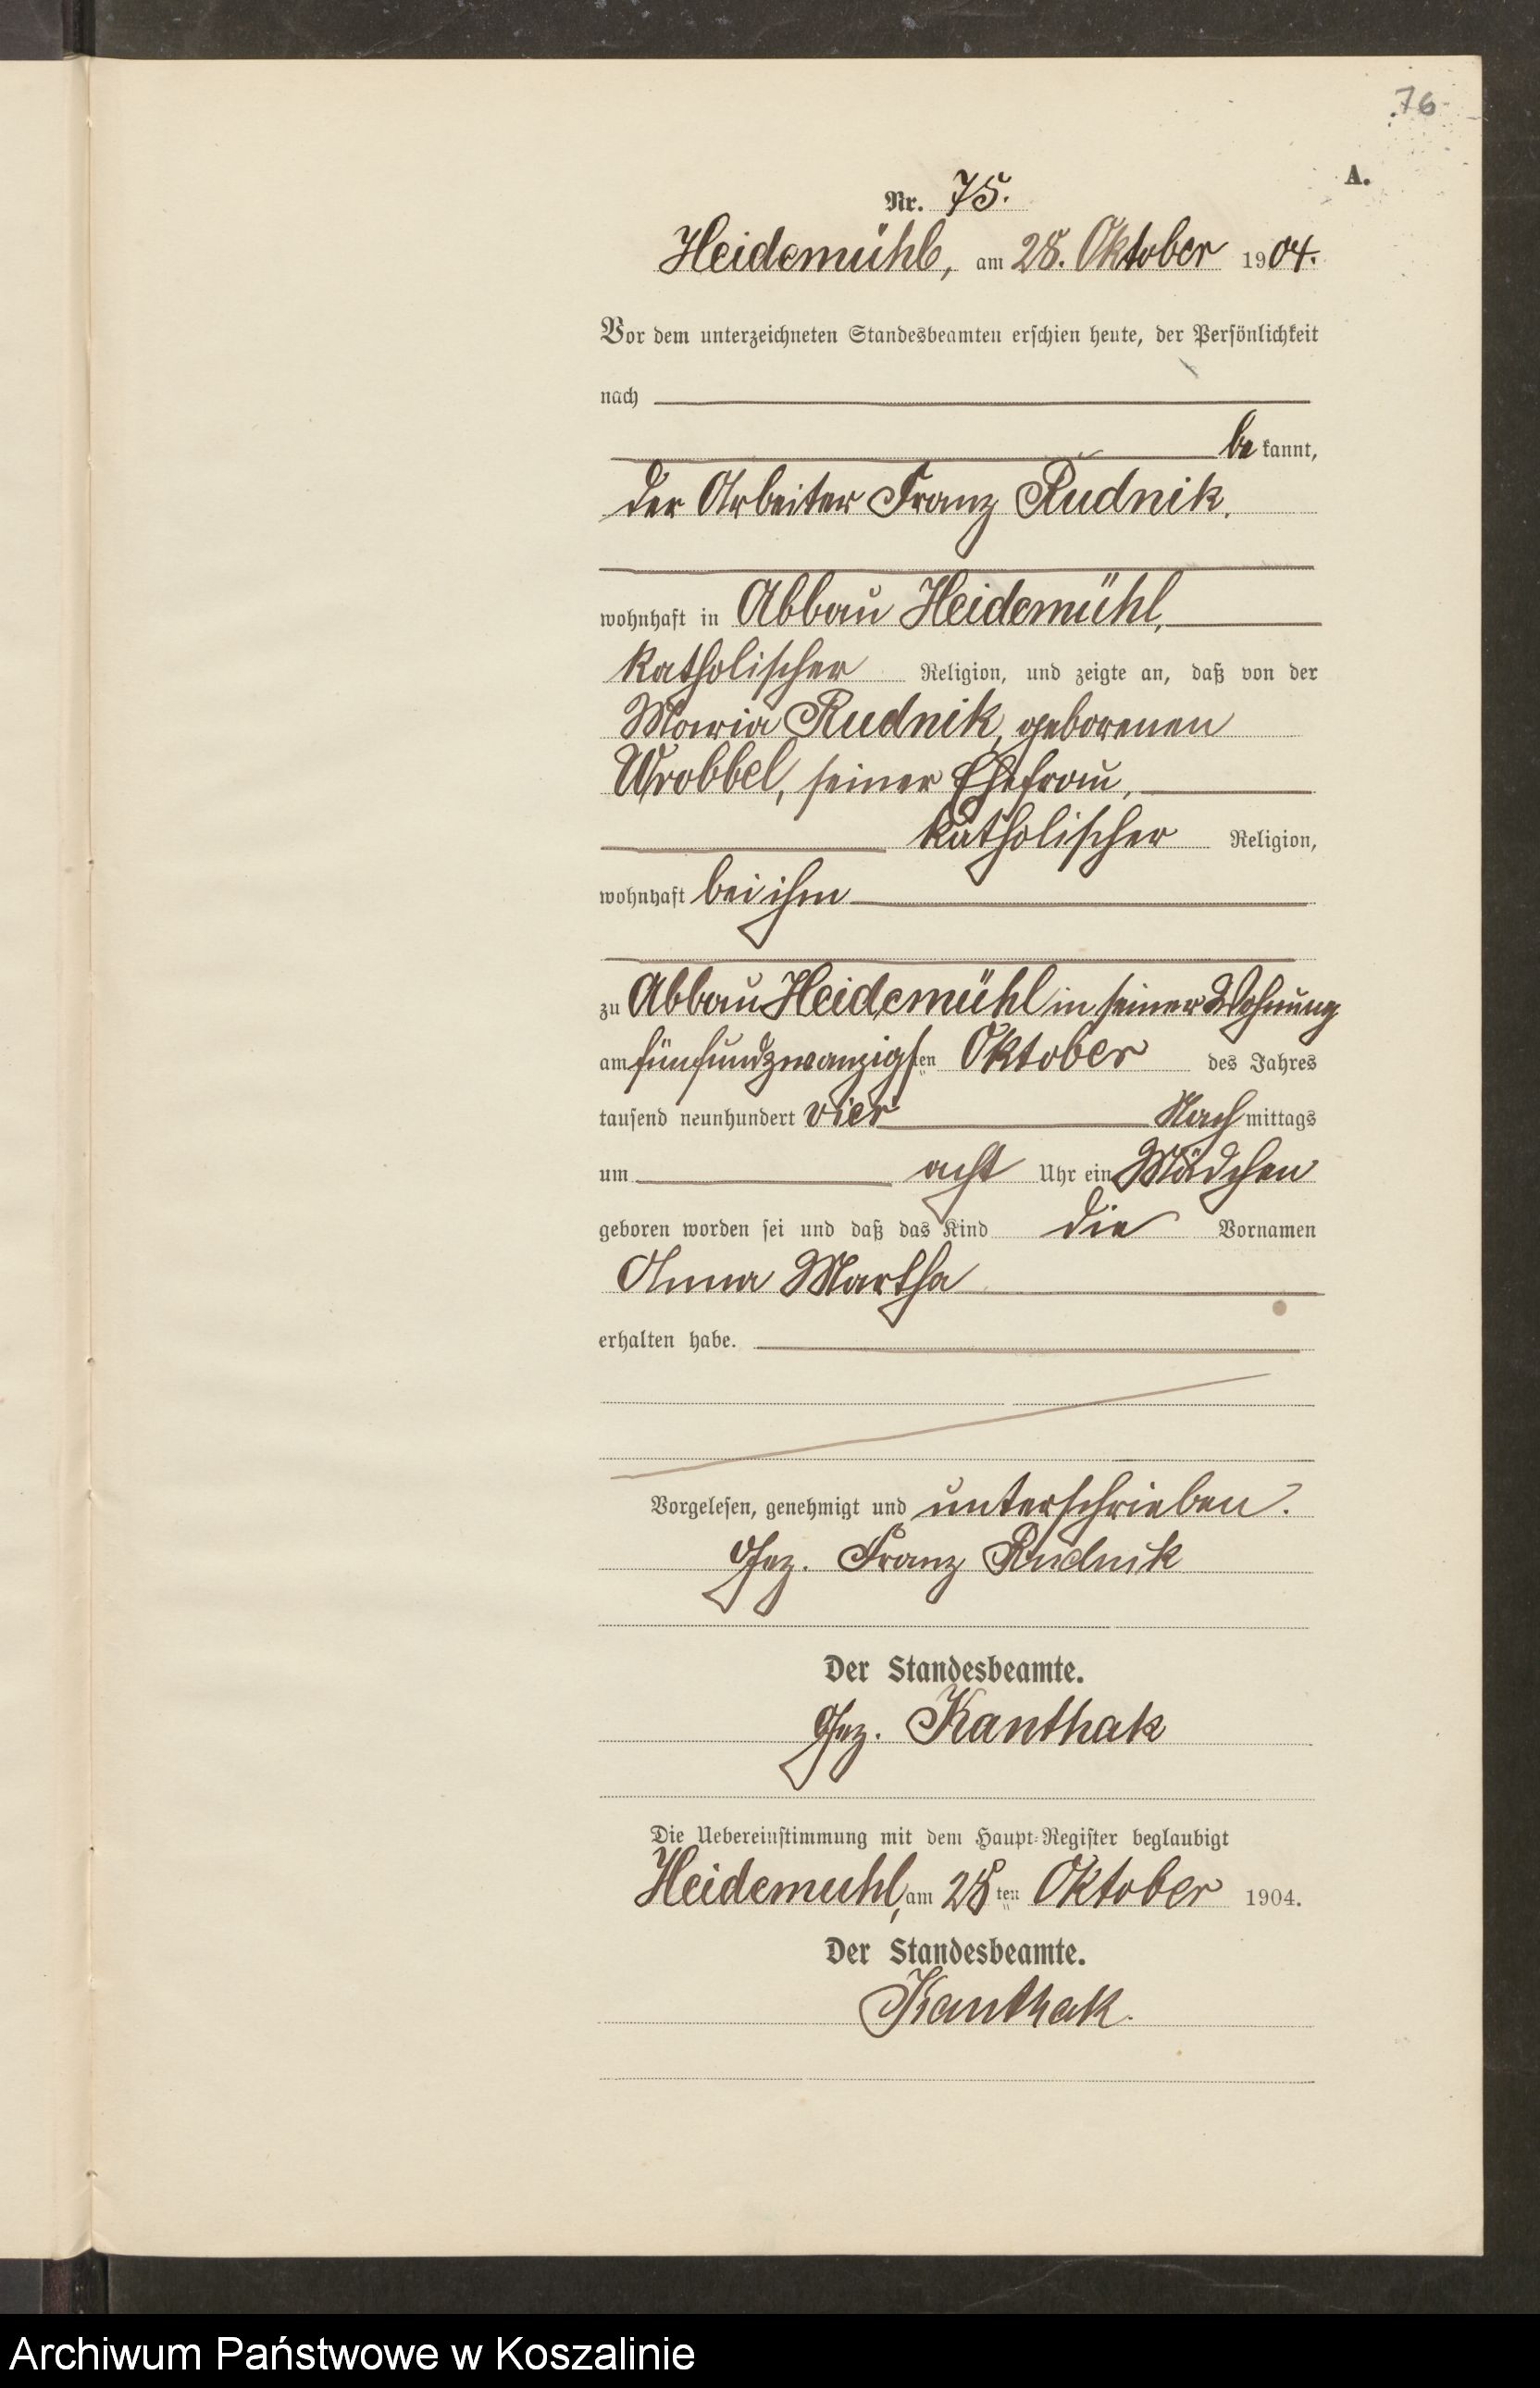 76
A.
Nr. 75.
Heidemühl, am 28. Oktober 1904.
Vor dem unterzeichneten Standesbeamten erschien heute, der Persönlichkeit
nach
be kannt,
der Arbeiter Franz Rudnik,
wohnhaft in Abbau Heidemühl,
katholischer Religion, und zeigte an, daß von der
Maria Rudnik, geborenen
Wrobbel, seiner Ehefrau,
katholischer Religion,
wohnhaft bei ihm
zu Abbau Heidemühl in seiner Wohnung
am fünfundzwanzigsten Oktober des Jahres
tausend neunhundert vier Nach mittags
um acht Uhr ein Mädchen
geboren worden sei und daß das Kind die Vornamen
Anna Martha
erhalten habe.
Vorgelesen, genehmigt und unterschrieben.
Gez. Franz Rudnik
Der Standesbeamte.
Gez. Kanthak
Die Uebereinstimmung mit dem Haupt-Register beglaubigt
Heidemuhl, am 28ten Oktober 1904.
Der Standesbeamte.
Kanthak.
Archiwum Państwowe w Koszalinie